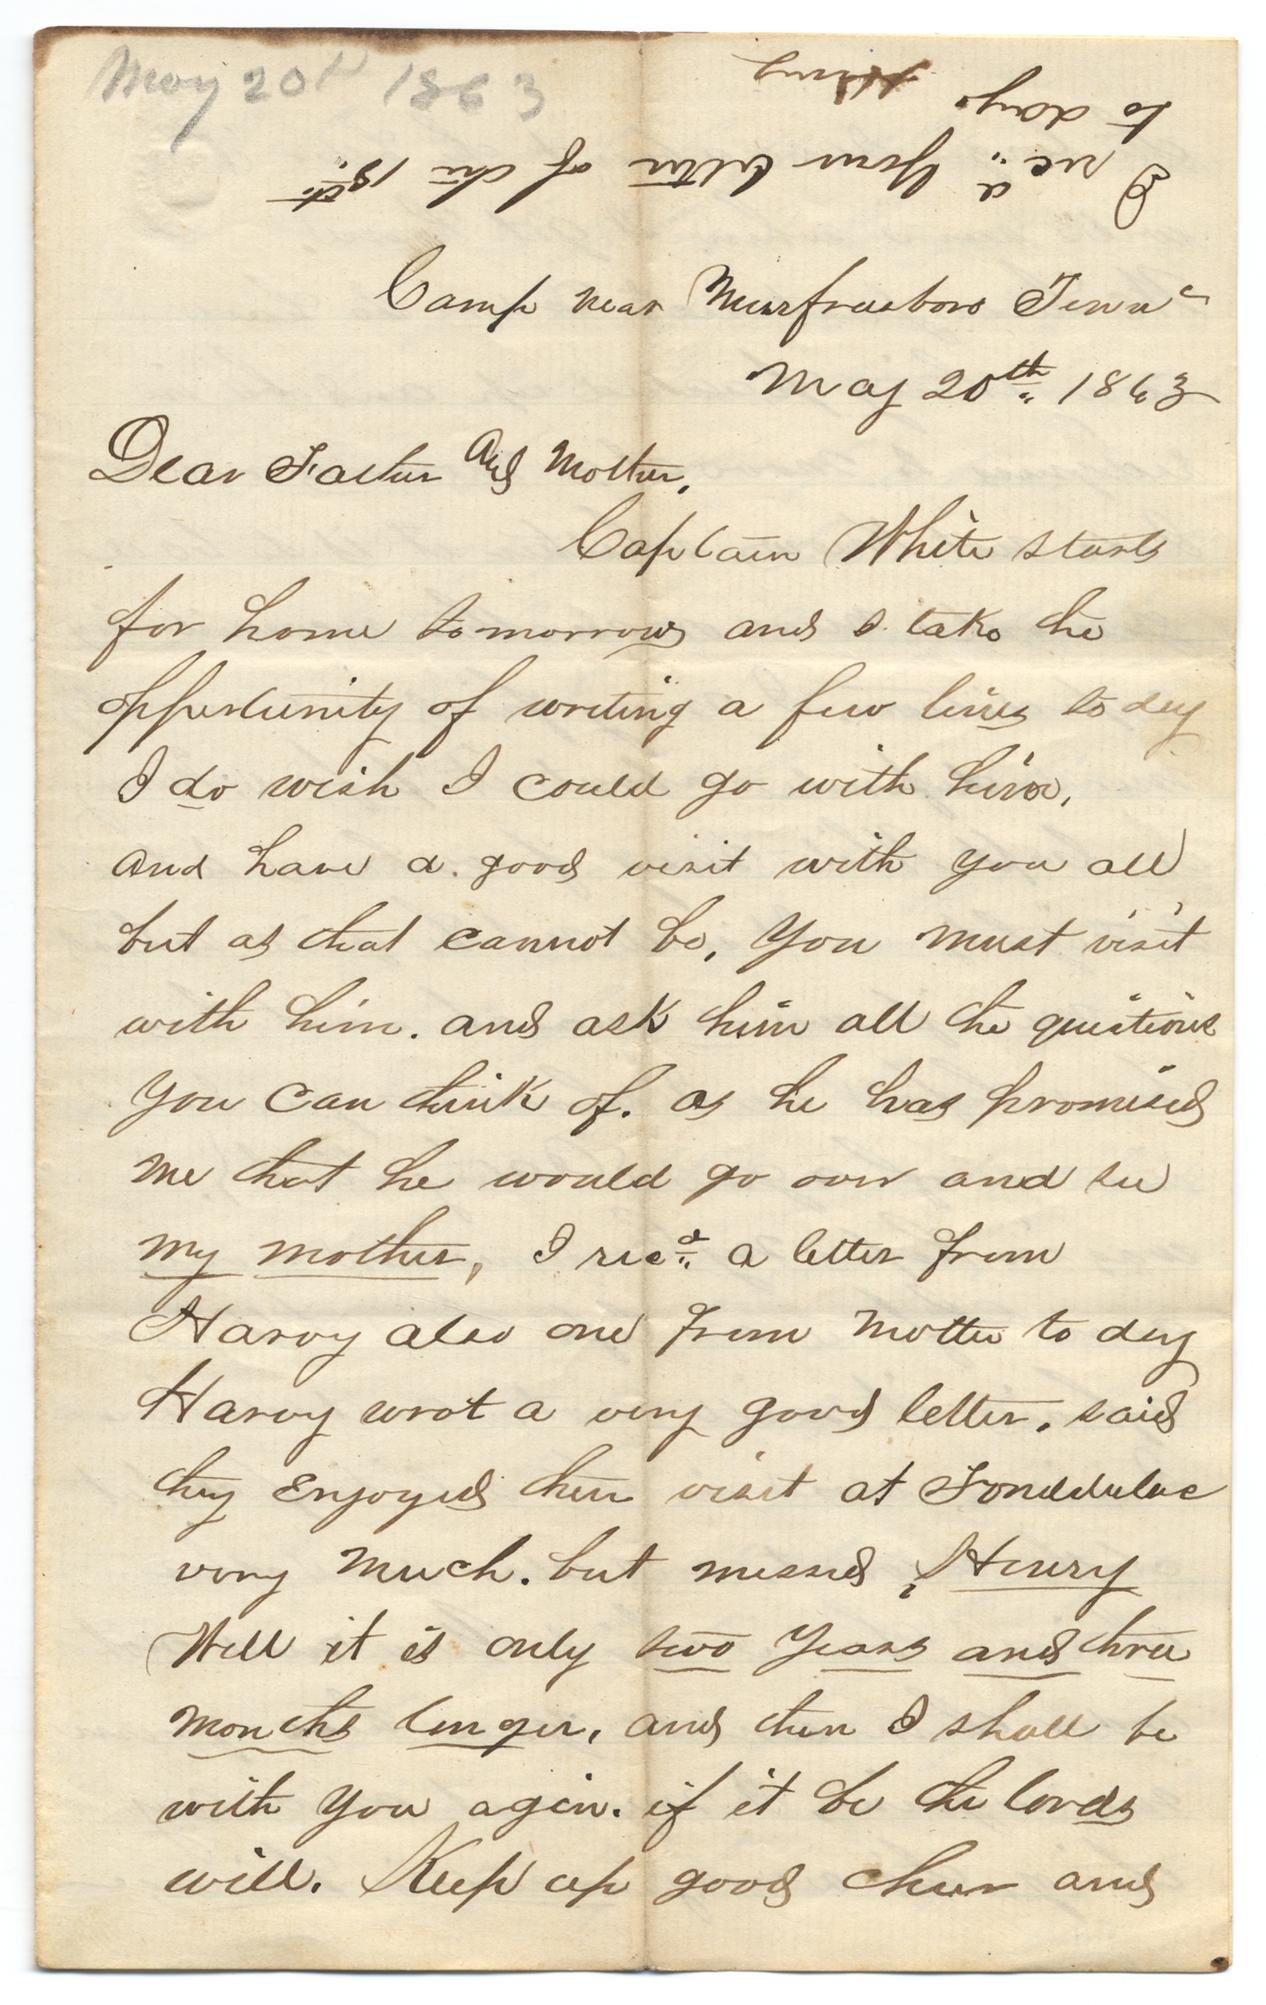 May 20th 1863
I rec.d Your letter of the 13th
to day. Henry
Camp near Murfreesboro Tenne
May 20th 1863
Dear Father And Mother,
Captain White starts
for home tomorrow and I take the
oppertunity of writing a few lines to day
I do wish I could go with him,
and have a good visit with you all
but as that cannot be, You must visit
with him. and ask him all the questions
You can think of. as he has promised
me that he would go over and see
my mother, I recd a letter from
Harvy also one from Mother to day
Harvy wrot a very good letter, said
they Enjoyed their visit at Fonddulac
very much. but missed Henry
Well it is only two Years and three
months longer, and then I shall be
with you again. if it be the lords
will. Keep up good cheer and